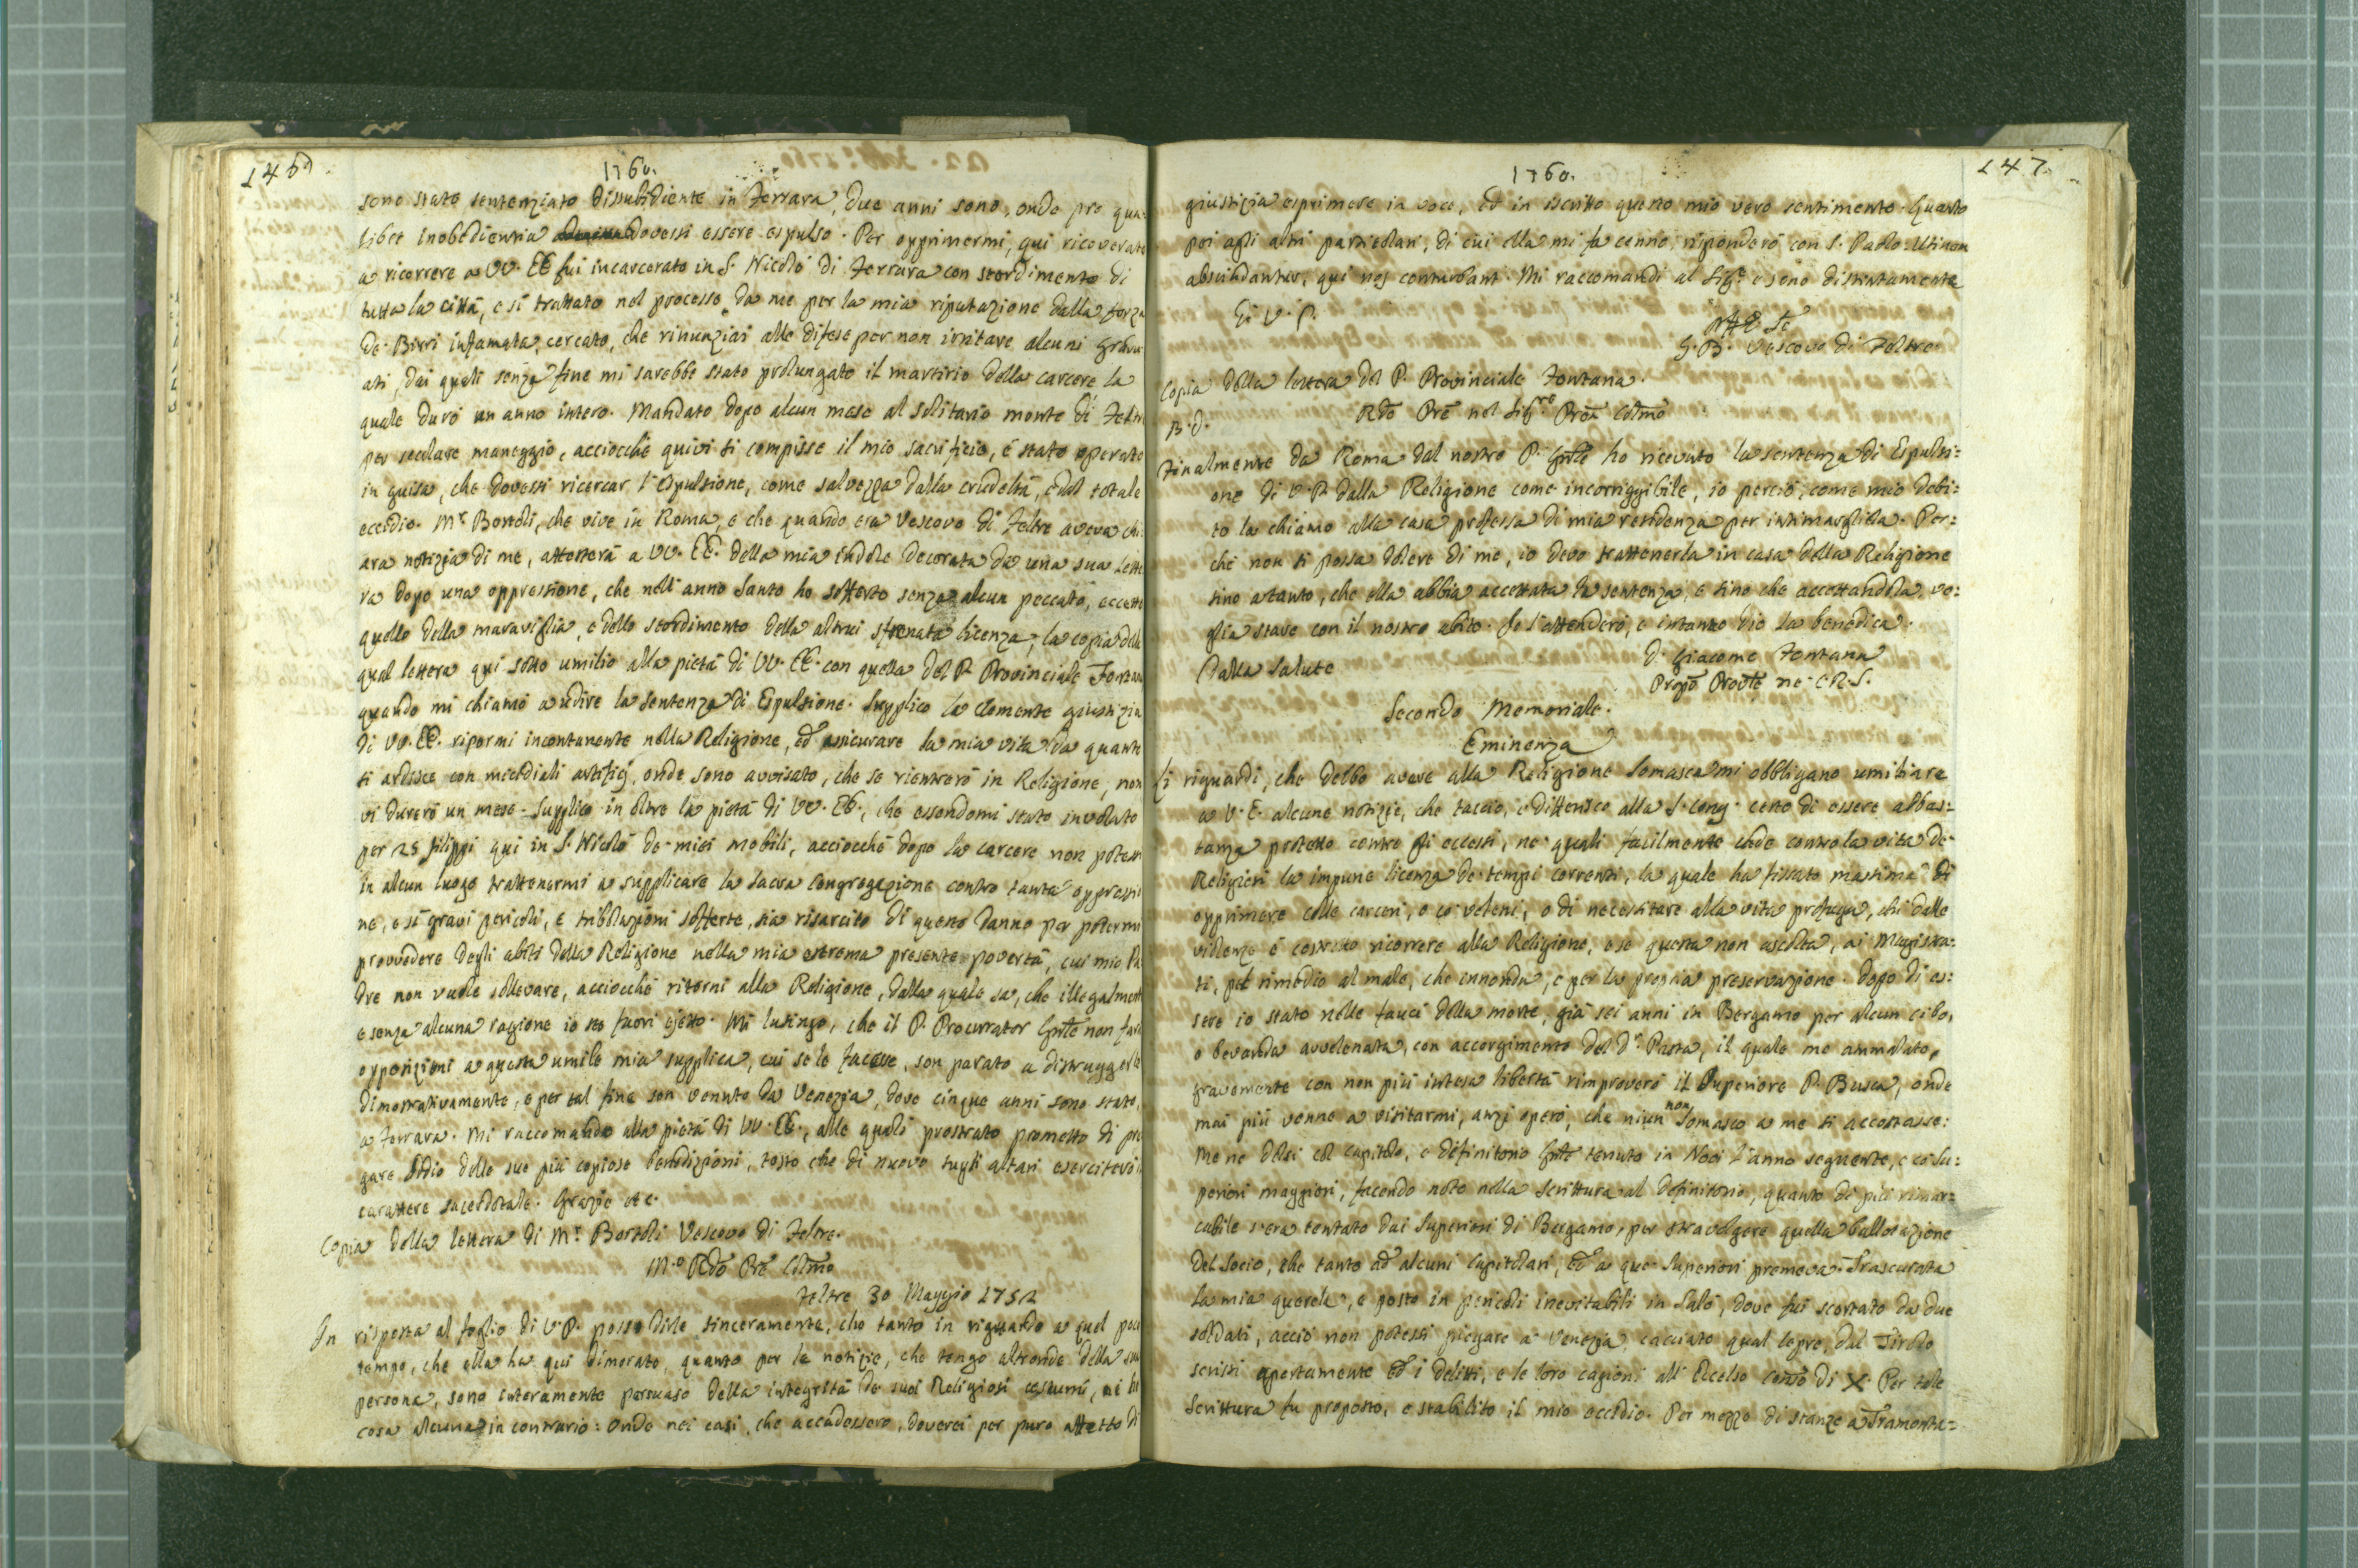 146
1760.
sono stato sentenziato dissubidiente in Ferrara, due anni sono, onde pro qua-
libet inobedientia dovessi essere espulso. Per opprimermi, qui ricoverato
a ricorrere a VV. EE fui incarcerato in S. Nicolò di Ferrara con stordimento di
tutta la città, e si trattato nel processo, da me per la mia riputazione dalla forza
de' Birri infamata, cercato, che rinunziai alle difese per non irritare alcuni Gradu
ati, dai quali senza fine mi sarebbe stato prolungato il martirio della carcere la
quale durò un anno intero. Mandato dopo alcun mese al solitario monte di Feltre
per seculare maneggio, acciocchè quivi si compisse il mio sacrificio, è stato operato
in guisa, che dovessi ricercar l'espulsione, come salvezza dalla crudeltà, e dal totale
eccidio. Mr. Bortoli, che vive in Roma, e che quando era Vescovo di Feltre aveva chi
ara notizia di me, attesterà a VV. EE. della mia indole decorata da una sua lette
ra dopo una oppressione, che nell'anno Santo ho sofferto senza alcun peccato, eccetto
quello della maraviglia, e dello stordimento della altrui sfrenata licenza; la copia della
qual lettera qui sotto umilio alla pietà di VV. EE. con quella del P. Provinciale Fontana
quando mi chiamò a udire la sentenza di Espulsione. Supplico la clemente giustizia
di VV. EE. ripormi incontanente nella Religione, ed assicurare la mia vita da quanti
si ardisce con micidiali artifizj, onde sono avvisato, che se rientrerò in Religione, non
vi durerò un mese. Supplico in oltre la pietà di VV. EE., che essendomi stato involato
per 25 filippi qui in S. Nicolò de' miei mobili, acciocchè dopo la carcere non potessi
in alcun luogo trattenermi a supplicare la Sacra Congregazione contro tanta oppressio
ne, e sì gravi pericoli, e tribolazioni sofferte, sia risarcito di questo danno per potermi
provvedere degli abiti della Religione nella mia estrema presente povertà, cui mio Pa
dre non vuole sollevare, acciocchè ritorni alla Religione, dalla quale sa, che illegalmente
e senza alcuna ragione io sto fuori ejetto. Mi lusingo, che il P. Procurator Gnle non farà
opposizioni a questa umile mia supplica, cui se le facesse, son parato a distruggerle
dimostrativamente, e per tal fine son venuto da Venezia, dove cinque anni sono stato,
a Ferrara. Mi raccomando alla pietà di VV. EE., alle quali prostrato prometto di pre
gare Iddio delle sue più copiose benedizioni, tosto che di nuovo sugli altari eserciterò il
carattere sacerdotale. Grazie etc.
Copia della lettera di Mr. Bortoli Vescovo di Feltre.
M.o Rdo Pre Colmo
Feltre 30 Maggio 1752
In risposta al foglio di V. P. posso dirle sinceramente, che tanto in riguardo a quel poco
tempo, che ella ha qui dimorato, quanto per le notizie, che tengo altronde della sua
persona, sono interamente persuaso della integrità de suoi Religiosi costumi, nè ho
cosa alcuna in contrario: onde nei casi, che accadessero, doverei per puro affetto di
147.
1760.
giustizia esprimere in voce, ed in iscritto questo mio vero sentimento. Quanto
poi agli altri particolari, di cui ella mi fa cenno, risponderò con S. Paolo: Utinam
abscindantur, qui nos conturbant. Mi raccomandi al Sigre e sono distintamente
Di V. P.
Aff
G. B. Vescovo di Feltre.
Copia della lettera del P. Provinciale Fontana.
Rdo Pre nel Sigre Pron Colmo
B. D.
Finalmente da Roma dal nostro P. Gnle ho ricevuto la sentenza di Espulsi=
one di V. P. dalla Religione come incorriggibile, io perciò, come mio debi=
to la chiamo alla casa professa di mia residenza per intimargliela. Per=
chè non si possa dolere di me, io devo trattenerla in casa della Religione
sino a tanto, che ella abbia accettata la sentenza, e sino che accettandola vo=
glia stare con il nostro abito. Io l'attenderò, e intanto Dio la benedica.
Dalla Salute
D. Giacomo Fontana
Propo Provle ne' C. R. S.
Secondo Memoriale.
Eminenza
Li riguardi, che debbo avere alla Religione Somasca mi obbligano umiliare
a V. E. alcune notizie, che taccio, e differisco alla S. Cong. certo di essere abbas=
tanza protetto contro gli eccessi, ne' quali facilmente cade contro la vita de'
Religiosi la impune licenza de' tempi correnti, la quale ha fissato massima di
opprimere colle carceri, o co' veleni, o di necessitare alla vita profuga, chi dalle
violenze è costretto ricorrere alla Religione, e se questa non ascolta, ai Magistra=
ti, pel rimedio al male, che innonda, e per la propria preservazione. Dopo di es=
sere io stato nelle fauci della morte, già sei anni in Bergamo per alcun cibo,
o bevanda avvelenata, con accorgimento del Dr. Pasta, il quale me ammalato,
gravemente con non più intesa libertà rimproverò il Superiore P. Busca, onde
mai più venne a visitarmi, anzi operò, che niun non Somasco a me si accostasse:
Me ne dolsi col capitolo, e definitorio Gnle tenuto in Novi l'anno seguente, e co' Su=
periori maggiori, facendo noto nella scrittura al definitorio, quanto di più rimar=
cabile s'era tentato dai Superiori di Bergamo, per stravolgere quella ballotazione
del Socio, che tanto ad alcuni Capitolari, ed a que' Superiori premeva. Trascurata
la mia querela, e posto in pericoli inevitabili in Salò, dove fui scortato da due
soldati, acciò non potessi piegare a Venezia, cacciato qual lepre, dal Tirolo
scrissi apertamente ed i delitti, e le loro cagioni all'Eccelso Conso di X. Per tale
Scrittura fu proposto, e stabilito il mio eccidio. Per mezzo di stanze a Tramonta=